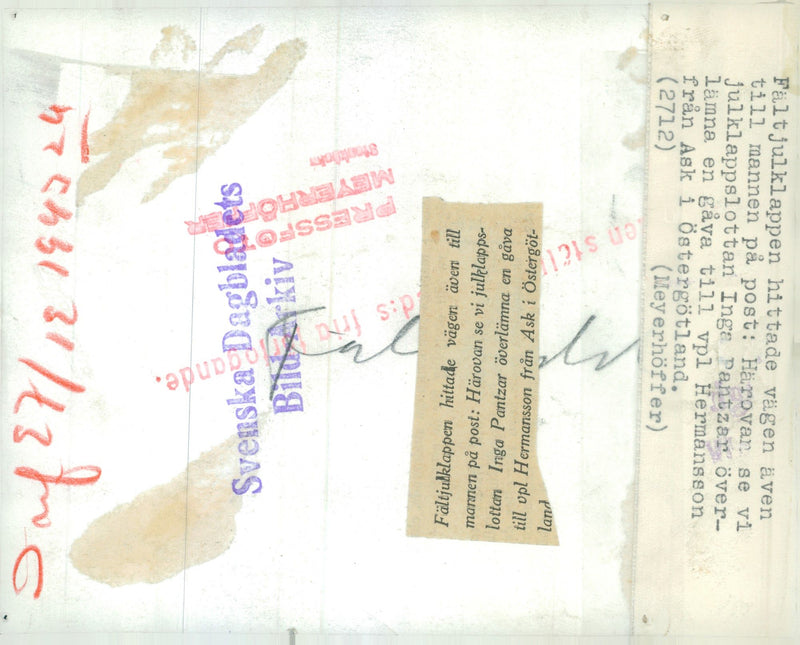 Fältjulklappen hittade vägen även
till mannen på post: Härovan se vi
julklappslottan Inga Pantzar över-
lämna en gåva till vpl Hermansson
från Ask i Östergötland.
(2712) (Meyerhöffer)
Fältjulklappen hittade vägen även till
mannen på post: Härovan se vi julklapps-
lottan Inga Pantzar överlämna en gåva
till vpl Hermansson från Ask i Östergöt-
land
Svenska Dagbladets
Bildarkiv
PRESSFOTO
MEYERHÖFFER
Stockholm
fria förfogande.
27/12 1943 24